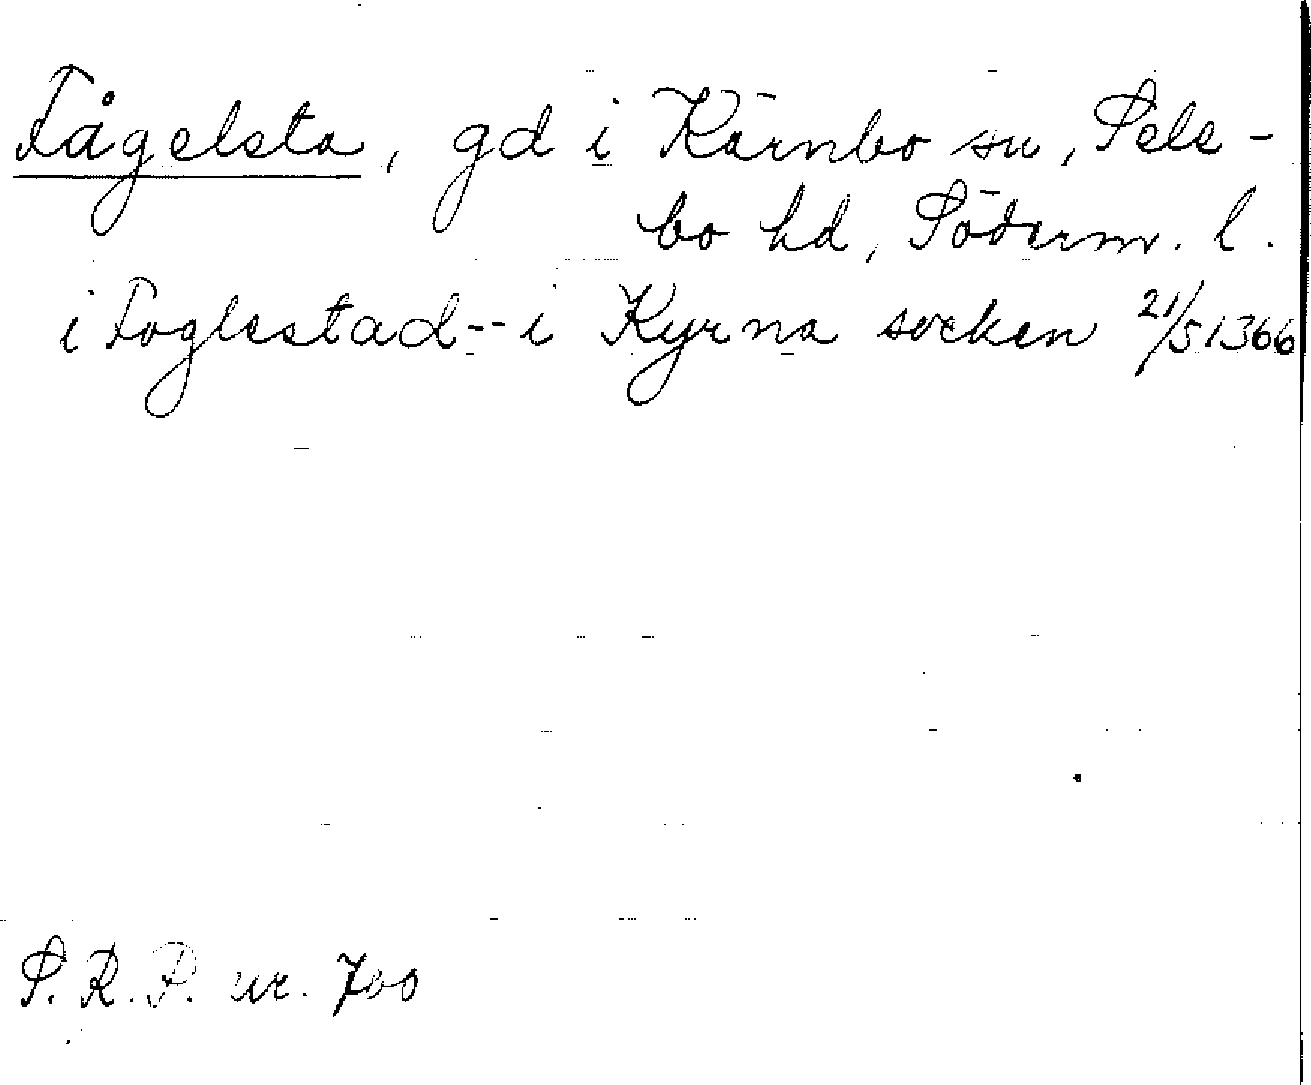 Fågelsta, gd i Kärnbo sn, Sele-
bo hd, Söderm. l.
i Foglestad -- i Kyrna socken 21/5 1366
S.R.P. nr. 700